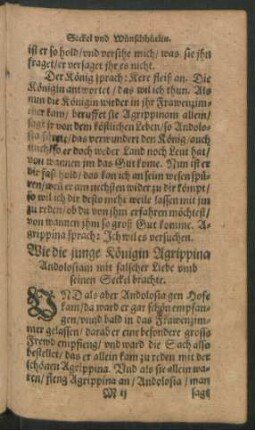 Seckel vnd Wünschhütlin.
ist er so hold/vnd versihe mich/was sie jhn
fraget/er versaget jhr es nicht.
Der König sprach: Kere fleiß an. Die
Königin antwortet/das wil ich thun. Als
nun die Königin wider in jhr Frawenzim-
mer kam/beruffet sie Agrippinam allein/
sagt jr von dem köstlichen Leben/so Andolo-
sia/das verwundert den König/auch
mich/so er doch weder Land noch Leut hat/
von wannen jm das Gut kome. Nun ist er
dir fast hold/das kan ich an seim wesen spü-
ren/weñ er am nechsten wider zu dir kömpt/
so wil ich dir desto mehr weile lassen mit jm
zu reden/ob du von jhm erfahren möchtest/
von wannen jhm so groß Gut komme. A-
grippina sprach: Ich wil es versuchen.
Wie die junge Königin Agrippina
Andolosiam mit falscher Liebe vmb
seinen Seckel brachte.
VND als aber Andolosia gen Hofe
kam/da ward er gar schön empfan-
gen/vnnd bald in das Frawenzim-
mer gelassen/darab er eine besondere grosse
Frewd empfieng/vnd ward die Sach also
bestellet/das er allein kam zu reden mit der
schönen Agrippina. Vnd als sie allein wa-
ren/fieng Agrippina an/Andolosia/man
M ij sagt